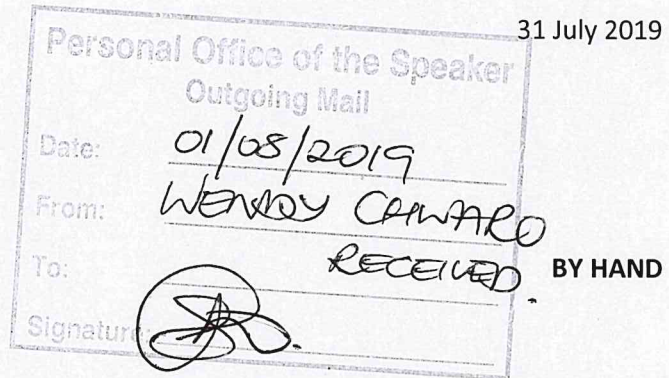 31 July 2019
Personal Office of the Speaker
Outgoing Mail
Date: 01/08/2019
From: WENDY
To: RECEIVED.
BY HAND
Signature: